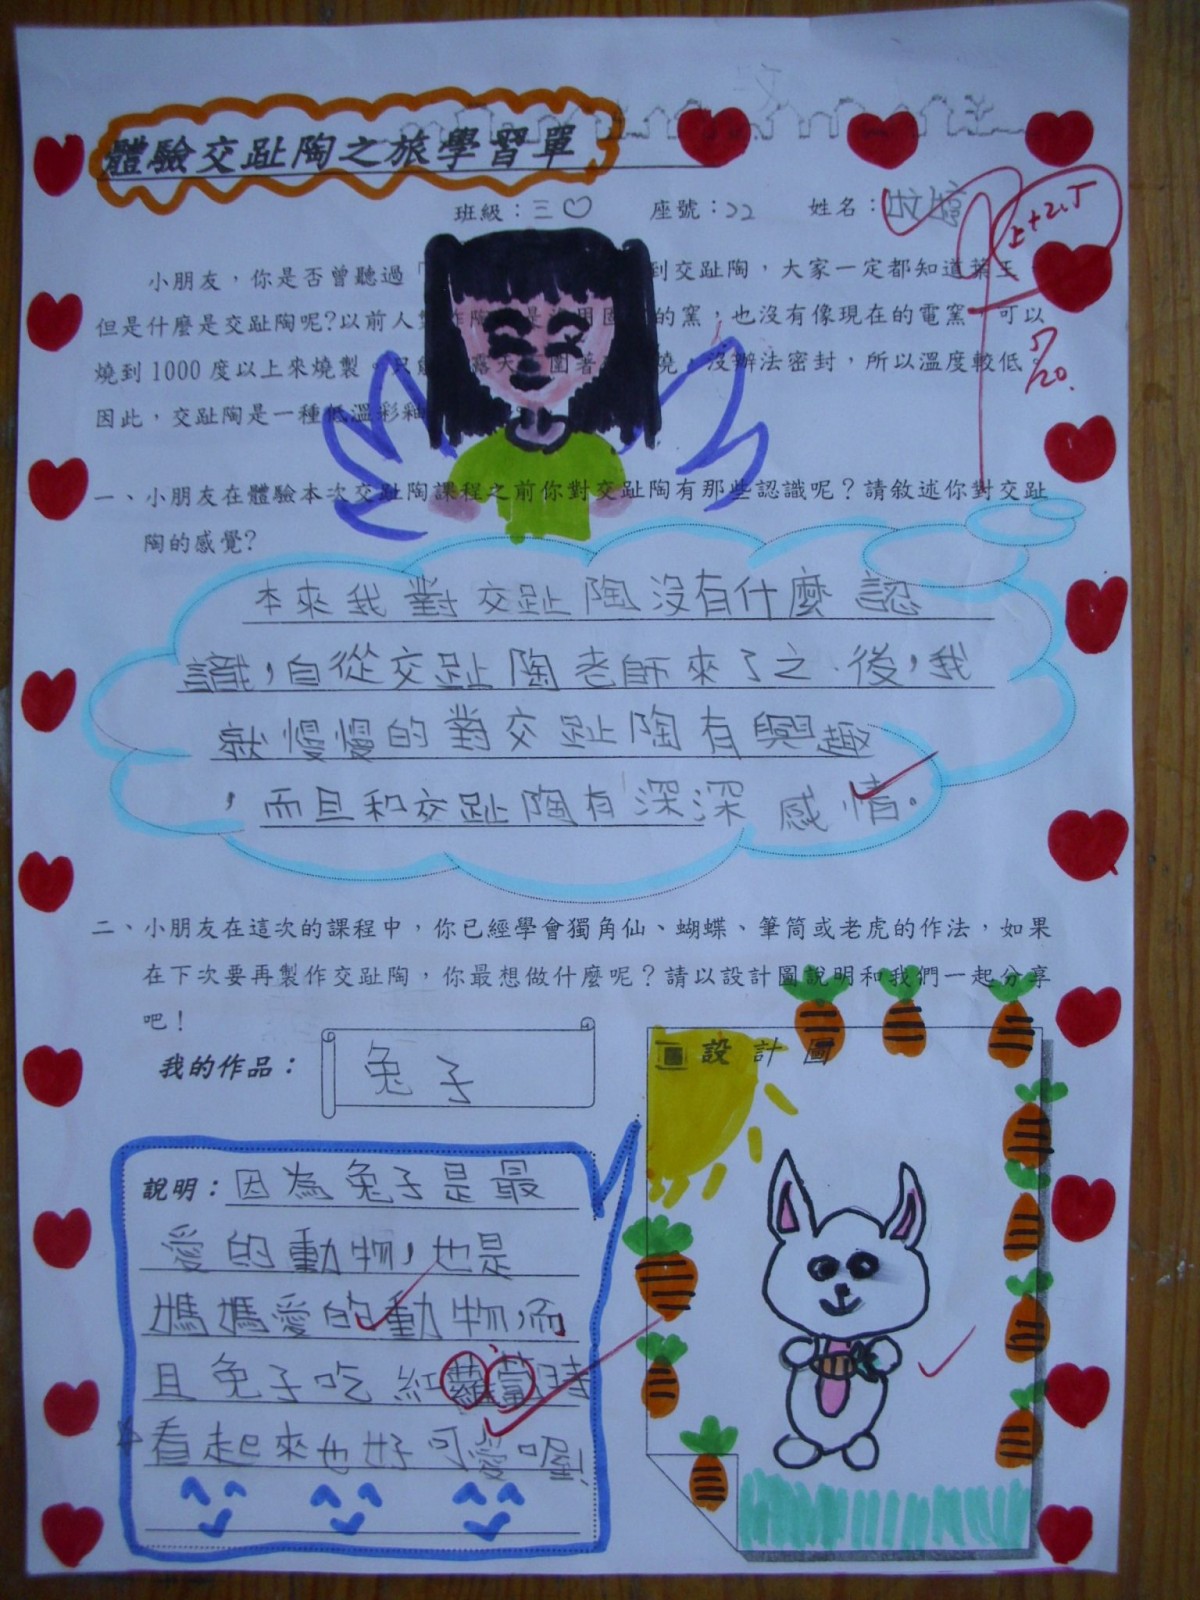 體驗交趾陶之旅學習單
班級：三♡ 座號：22 姓名：
上+2、丁
5/20.
小朋友，你是否曾聽過「 到交趾陶，大家一定都知道葉王
但是什麼是交趾陶呢?以前人 作陶 是沒用固 的窯，也沒有像現在的電窯 可以
燒到1000度以上來燒製。只能 露天 圍著 燒，沒辦法密封，所以溫度較低
因此，交趾陶是一種低溫彩釉
一、小朋友在體驗本次交趾陶課程之前你對交趾陶有那些認識呢？請敘述你對交趾
陶的感覺?
本來我對交趾陶沒有什麼認
識，自從交趾陶老師來了之後，我
就慢慢的對交趾陶有興趣
，而且和交趾陶有深深感情。
二、小朋友在這次的課程中，你已經學會獨角仙、蝴蝶、筆筒或老虎的作法，如果
在下次要再製作交趾陶，你最想做什麼呢？請以設計圖說明和我們一起分享
吧！
我的作品：兔子
設計圖
說明：因為兔子是最
愛的動物，也是
媽媽愛的動物，而
且兔子吃紅蘿蔔時
看起來也好可愛喔!